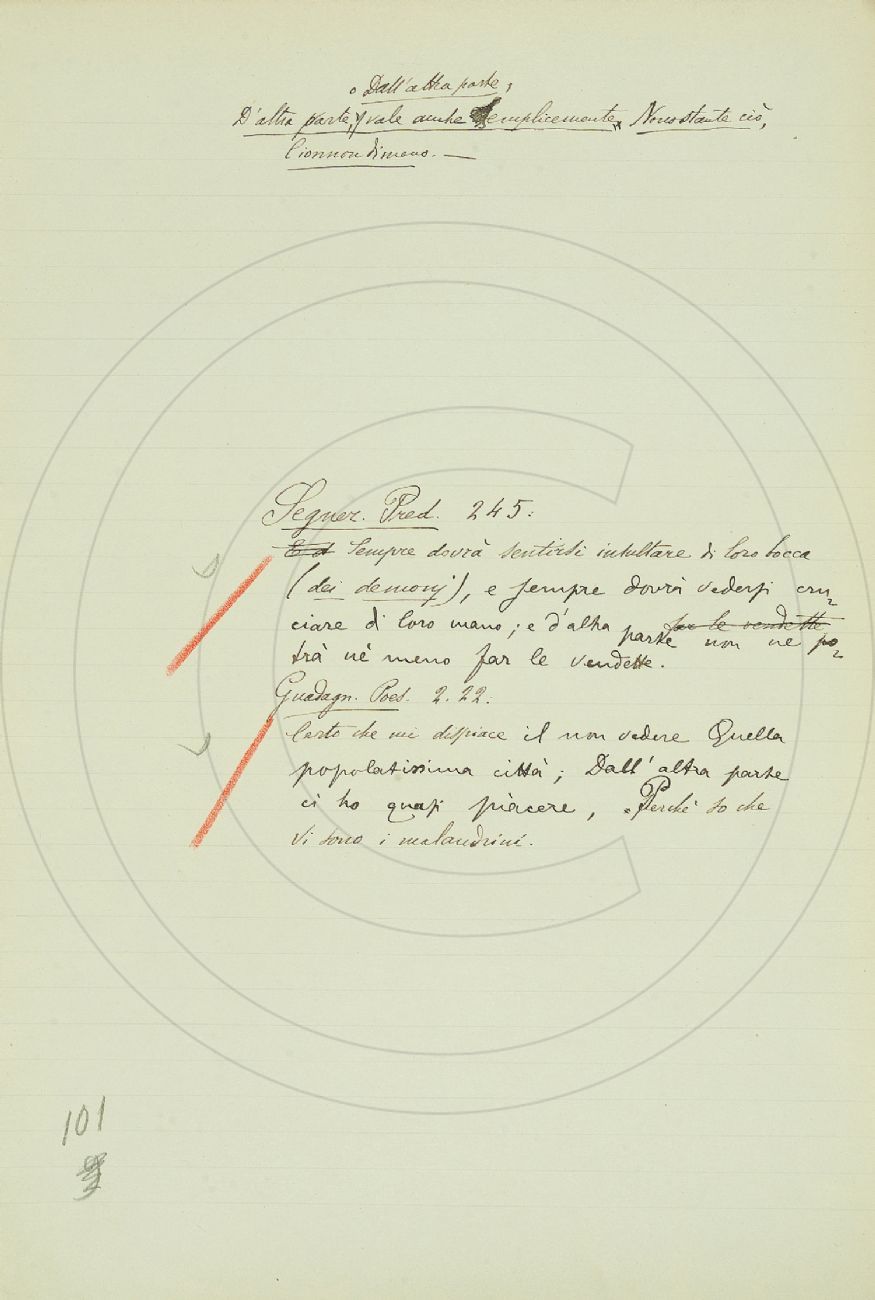 o Dall'altra parte,
D'altra parte, vale anche Semplicemente, Nonostante ciò,
Cionnondimeno. —
Segner. Pred. 245:
E d Sempre dovrà sentirsi insultare di loro bocca
(dei demonj), e sempre dovrà vedersi cru=
ciare di loro mano; e d'altra parte far le vendette non ne po=
trà nè meno far le vendette.
Guadagn. Poes. 2. 22:
Certo che mi dispiace il non vedere Quella
popolatissima città; Dall'altra parte
ci ho quasi piacere, Perchè so che
Vi sono i malandrini.
101